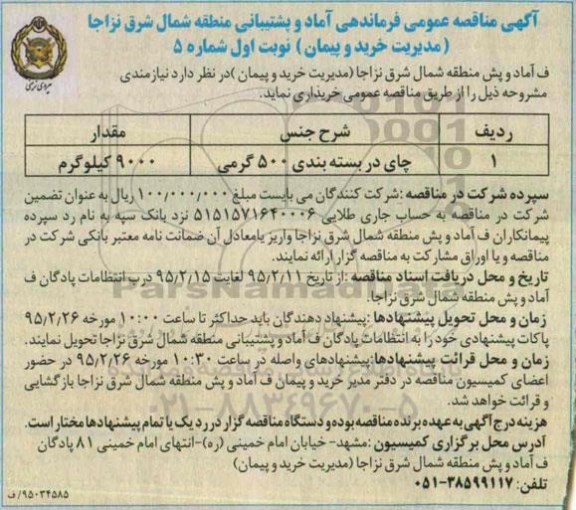 آگهی مناقصه عمومی فرماندهی آماد و پشتیبانی منطقه شمال شرق نزاجا
(مدیریت خرید و پیمان) نوبت اول شماره ۵
ف آماد و پش منطقه شمال شرق نزاجا (مدیریت خرید و پیمان )در نظر دارد نیازمندی
مشروحه ذیل را از طریق مناقصه عمومی خریداری نماید.
ردیف شرح جنس مقدار
۱ چای در بسته بندی ۵۰۰ گرمی ۹۰۰۰ کیلوگرم
سپرده شرکت در مناقصه :شرکت کنندگان می بایست مبلغ ۱۰۰,۰۰۰,۰۰۰ ریال به عنوان تضمین
شرکت در مناقصه به حساب جاری طلایی ۵۱۵۱۵۷۱۶۴۰۰۰۶ نزد بانک سپه به نام رد سپرده
پیمانکاران ف آماد و پش منطقه شمال شرق نزاجا واریز یا معادل آن ضمانت نامه معتبر بانکی شرکت در
مناقصه و یا اوراق مشارکت به مناقصه گزار ارائه نمایند.
تاریخ و محل دریافت اسناد مناقصه :از تاریخ ۹۵/۲/۱۱ لغایت ۹۵/۲/۱۵ درب انتظامات پادگان ف
آماد و پش منطقه شمال شرق نزاجا.
زمان و محل تحویل پیشنهادها :پیشنهاد دهندگان باید حداکثر تا ساعت ۱۰:۰۰ مورخه ۹۵/۲/۲۶
پاکات پیشنهادی خود را به انتظامات پادگان ف آماد و پشتیبانی منطقه شمال شرق نزاجا تحویل نمایند.
زمان و محل قرائت پیشنهادها:پیشنهادهای واصله در ساعت ۱۰:۳۰ مورخه ۹۵/۲/۲۶ در حضور
اعضای کمیسیون مناقصه در دفتر مدیر خرید و پیمان ف آماد و پش منطقه شمال شرق نزاجا بازگشایی
و قرائت خواهد شد.
هزینه درج آگهی به عهده برنده مناقصه بوده و دستگاه مناقصه گزار در رد یک یا تمام پیشنهادها مختار است.
آدرس محل برگزاری کمیسیون :مشهد- خیابان امام خمینی (ره)-انتهای امام خمینی ۸۱ پادگان
ف آماد و پش منطقه شمال شرق نزاجا (مدیریت خرید و پیمان)
تلفن: ۳۸۵۹۹۱۱۷-۰۵۱
۹۵۰۳۴۵۸۵/ف
ParsNamadData
۰۲۱-۸۸۳۴۹۶۷۰-۵